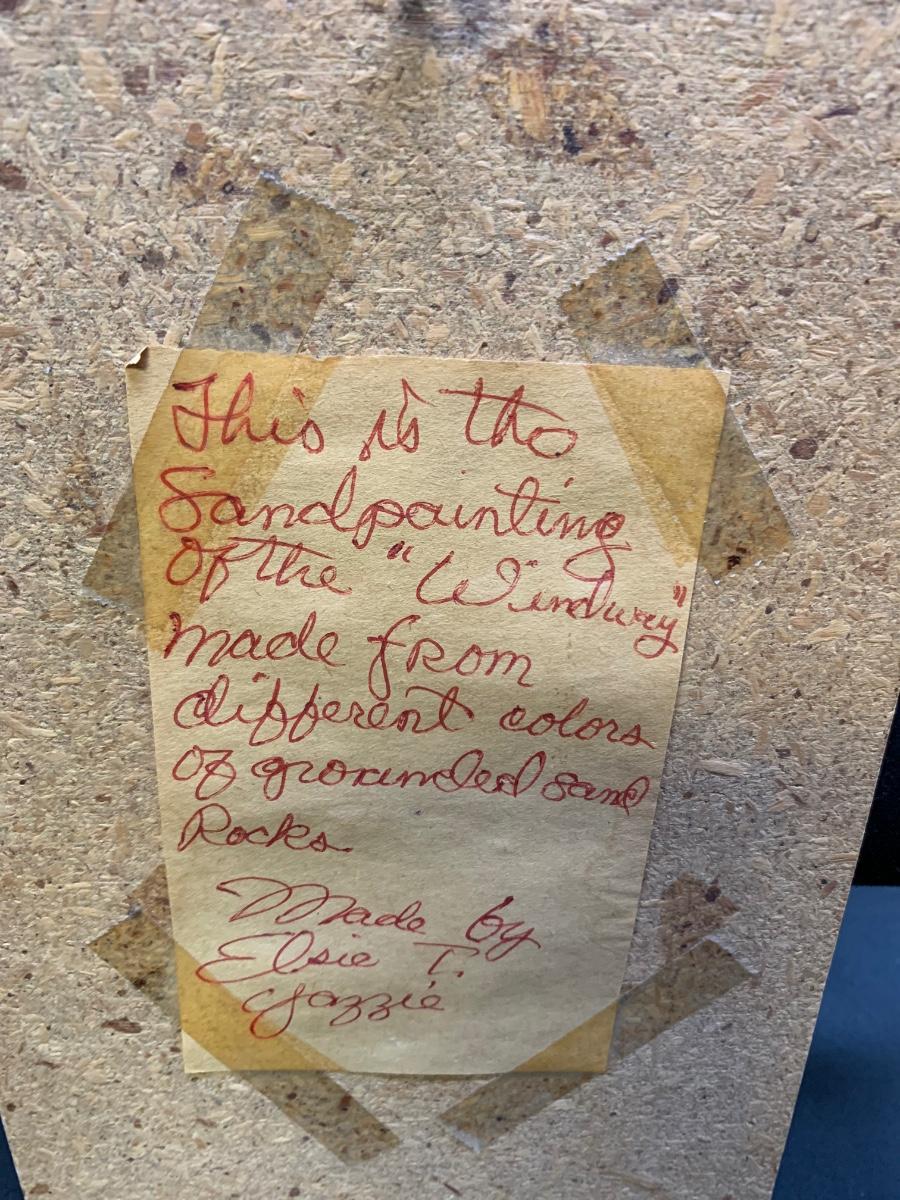 This is the
Sandpainting
Of the "Windway"
made from
different colors
of grounded sand
Rocks
Made by
Elsie T.
Yazzie